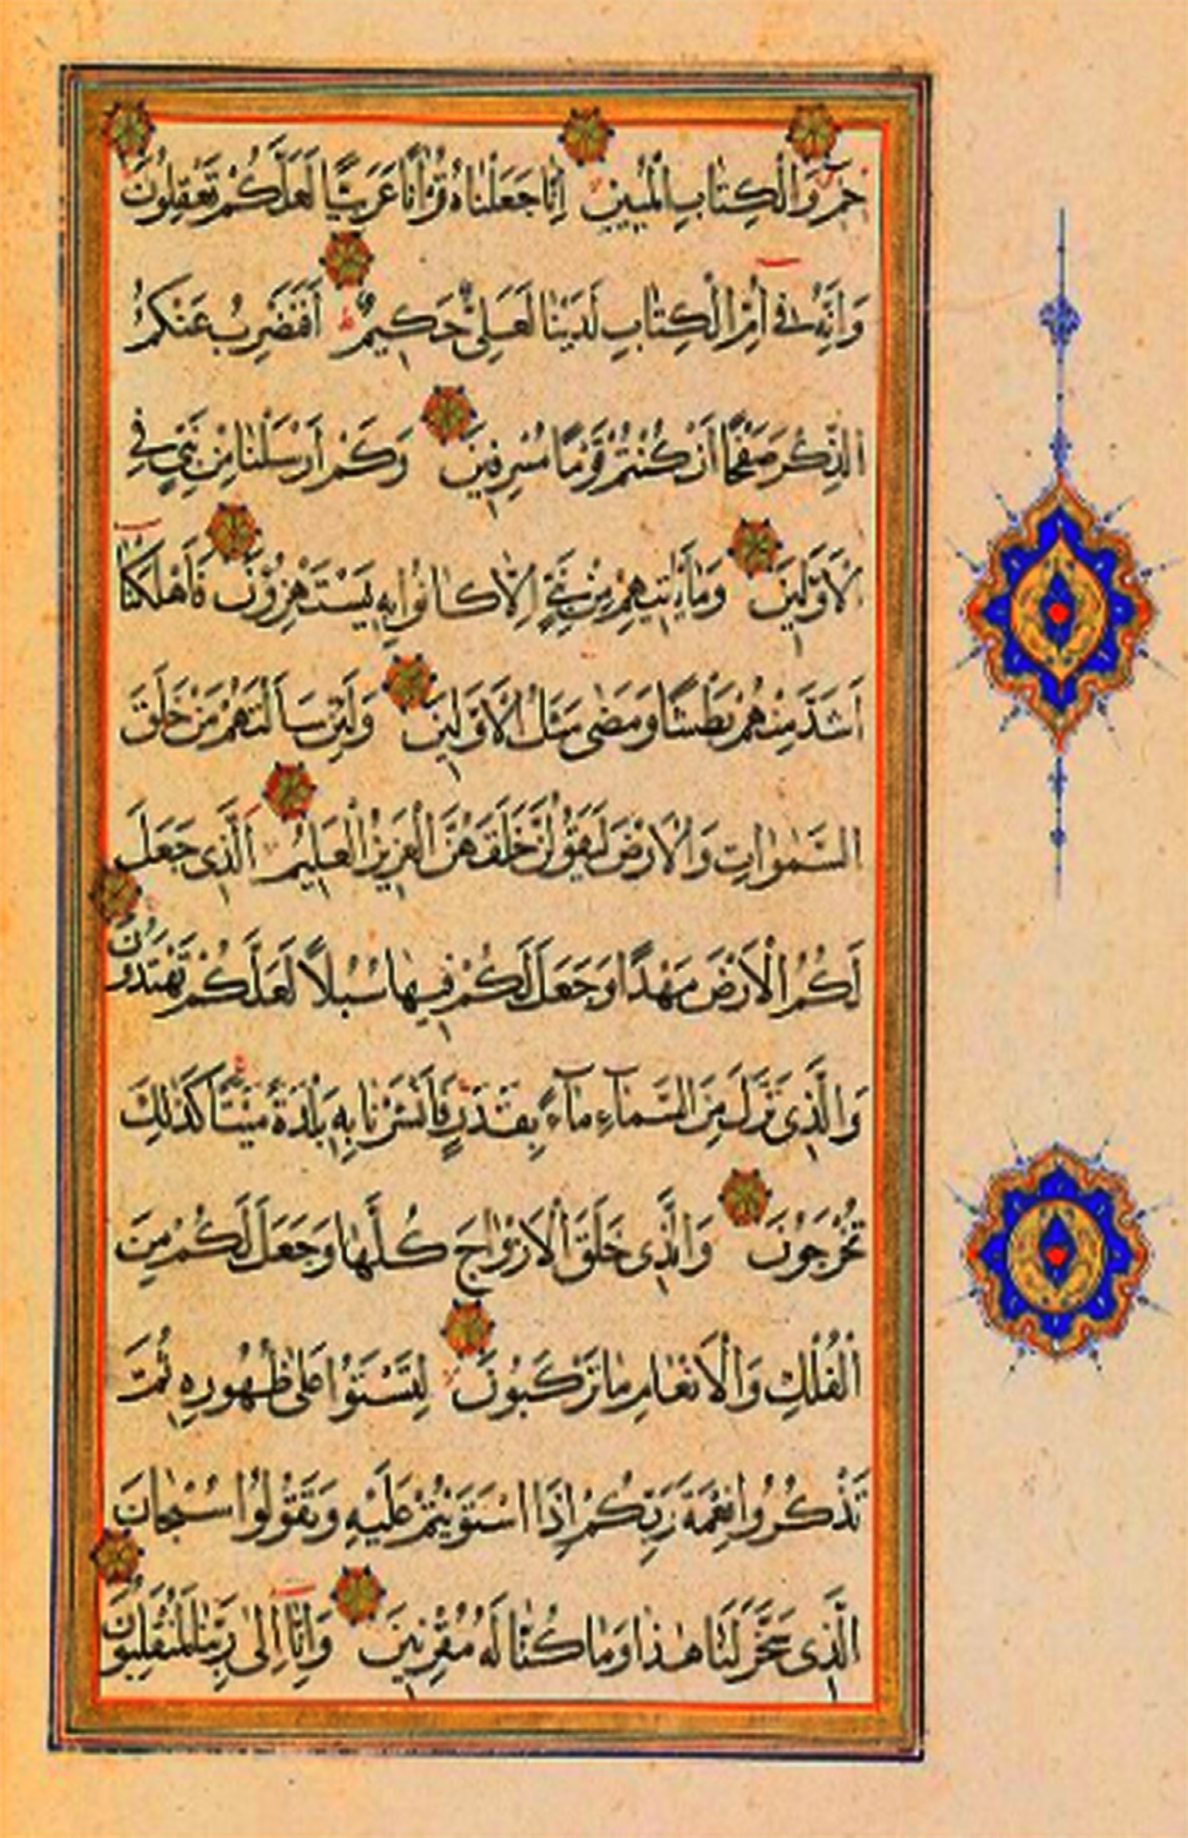 حمٓ وَالْكِتَابِ الْمُبٖينِ اِنَّا جَعَلْنَاهُ قُرْاٰنًا عَرَبِيًّا لَعَلَّكُمْ تَعْقِلُونَ
وَاِنَّهُ فٖى اُمِّ الْكِتَابِ لَدَيْنَا لَعَلِىٌّ حَكٖيمٌ اَفَنَضْرِبُ عَنْكُمُ
الذِّكْرَ صَفْحًا اَنْ كُنْتُمْ قَوْمًا مُسْرِفٖينَ وَكَمْ اَرْسَلْنَا مِنْ نَبِىٍّ فِى
الْاَوَّلٖينَ وَمَا يَاْتٖيهِمْ مِنْ نَبِىٍّ اِلَّا كَانُوا بِهٖ يَسْتَهْزِؤُنَ فَاَهْلَكْنَا
اَشَدَّ مِنْهُمْ بَطْشًا وَمَضٰى مَثَلُ الْاَوَّلٖينَ وَلَئِنْ سَاَلْتَهُمْ مَنْ خَلَقَ
السَّمٰوَاتِ وَالْاَرْضَ لَيَقُولُنَّ خَلَقَهُنَّ الْعَزٖيزُ الْعَلٖيمُ اَلَّذٖى جَعَلَ
لَكُمُ الْاَرْضَ مَهْدًا وَجَعَلَ لَكُمْ فٖيهَا سُبُلًا لَعَلَّكُمْ تَهْتَدُونَ
وَالَّذٖى نَزَّلَ مِنَ السَّمَآءِ مَآءً بِقَدَرٍ فَاَنْشَرْنَا بِهٖ بَلْدَةً مَيْتًا كَذٰلِكَ
تُخْرَجُونَ وَالَّذٖى خَلَقَ الْاَزْوَاجَ كُلَّهَا وَجَعَلَ لَكُمْ مِنَ
الْفُلْكِ وَالْاَنْعَامِ مَا تَرْكَبُونَ لِتَسْتَوُا عَلٰى ظُهُورِهٖ ثُمَّ
تَذْكُرُوا نِعْمَةَ رَبِّكُمْ اِذَا اسْتَوَيْتُمْ عَلَيْهِ وَتَقُولُوا سُبْحَانَ
الَّذٖى سَخَّرَ لَنَا هٰذَا وَمَا كُنَّا لَهُ مُقْرِنٖينَ وَاِنَّا اِلٰى رَبِّنَا لَمُنْقَلِبُونَ